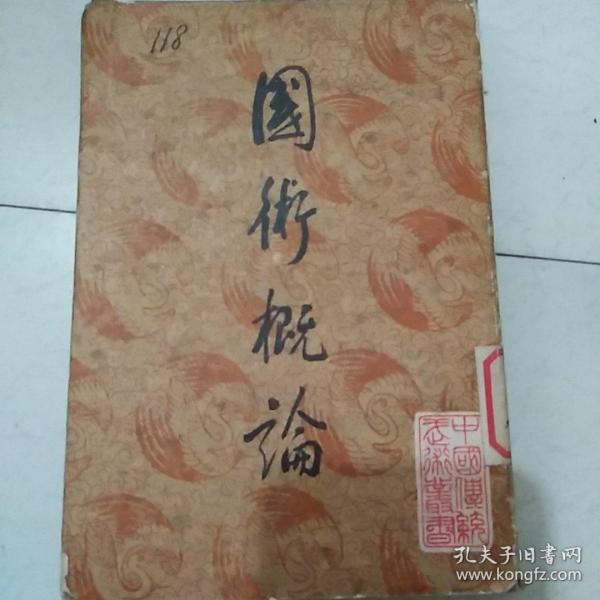 118
國術概論
中國傳統
武術叢書
孔夫子旧书网
www.kongfz.com